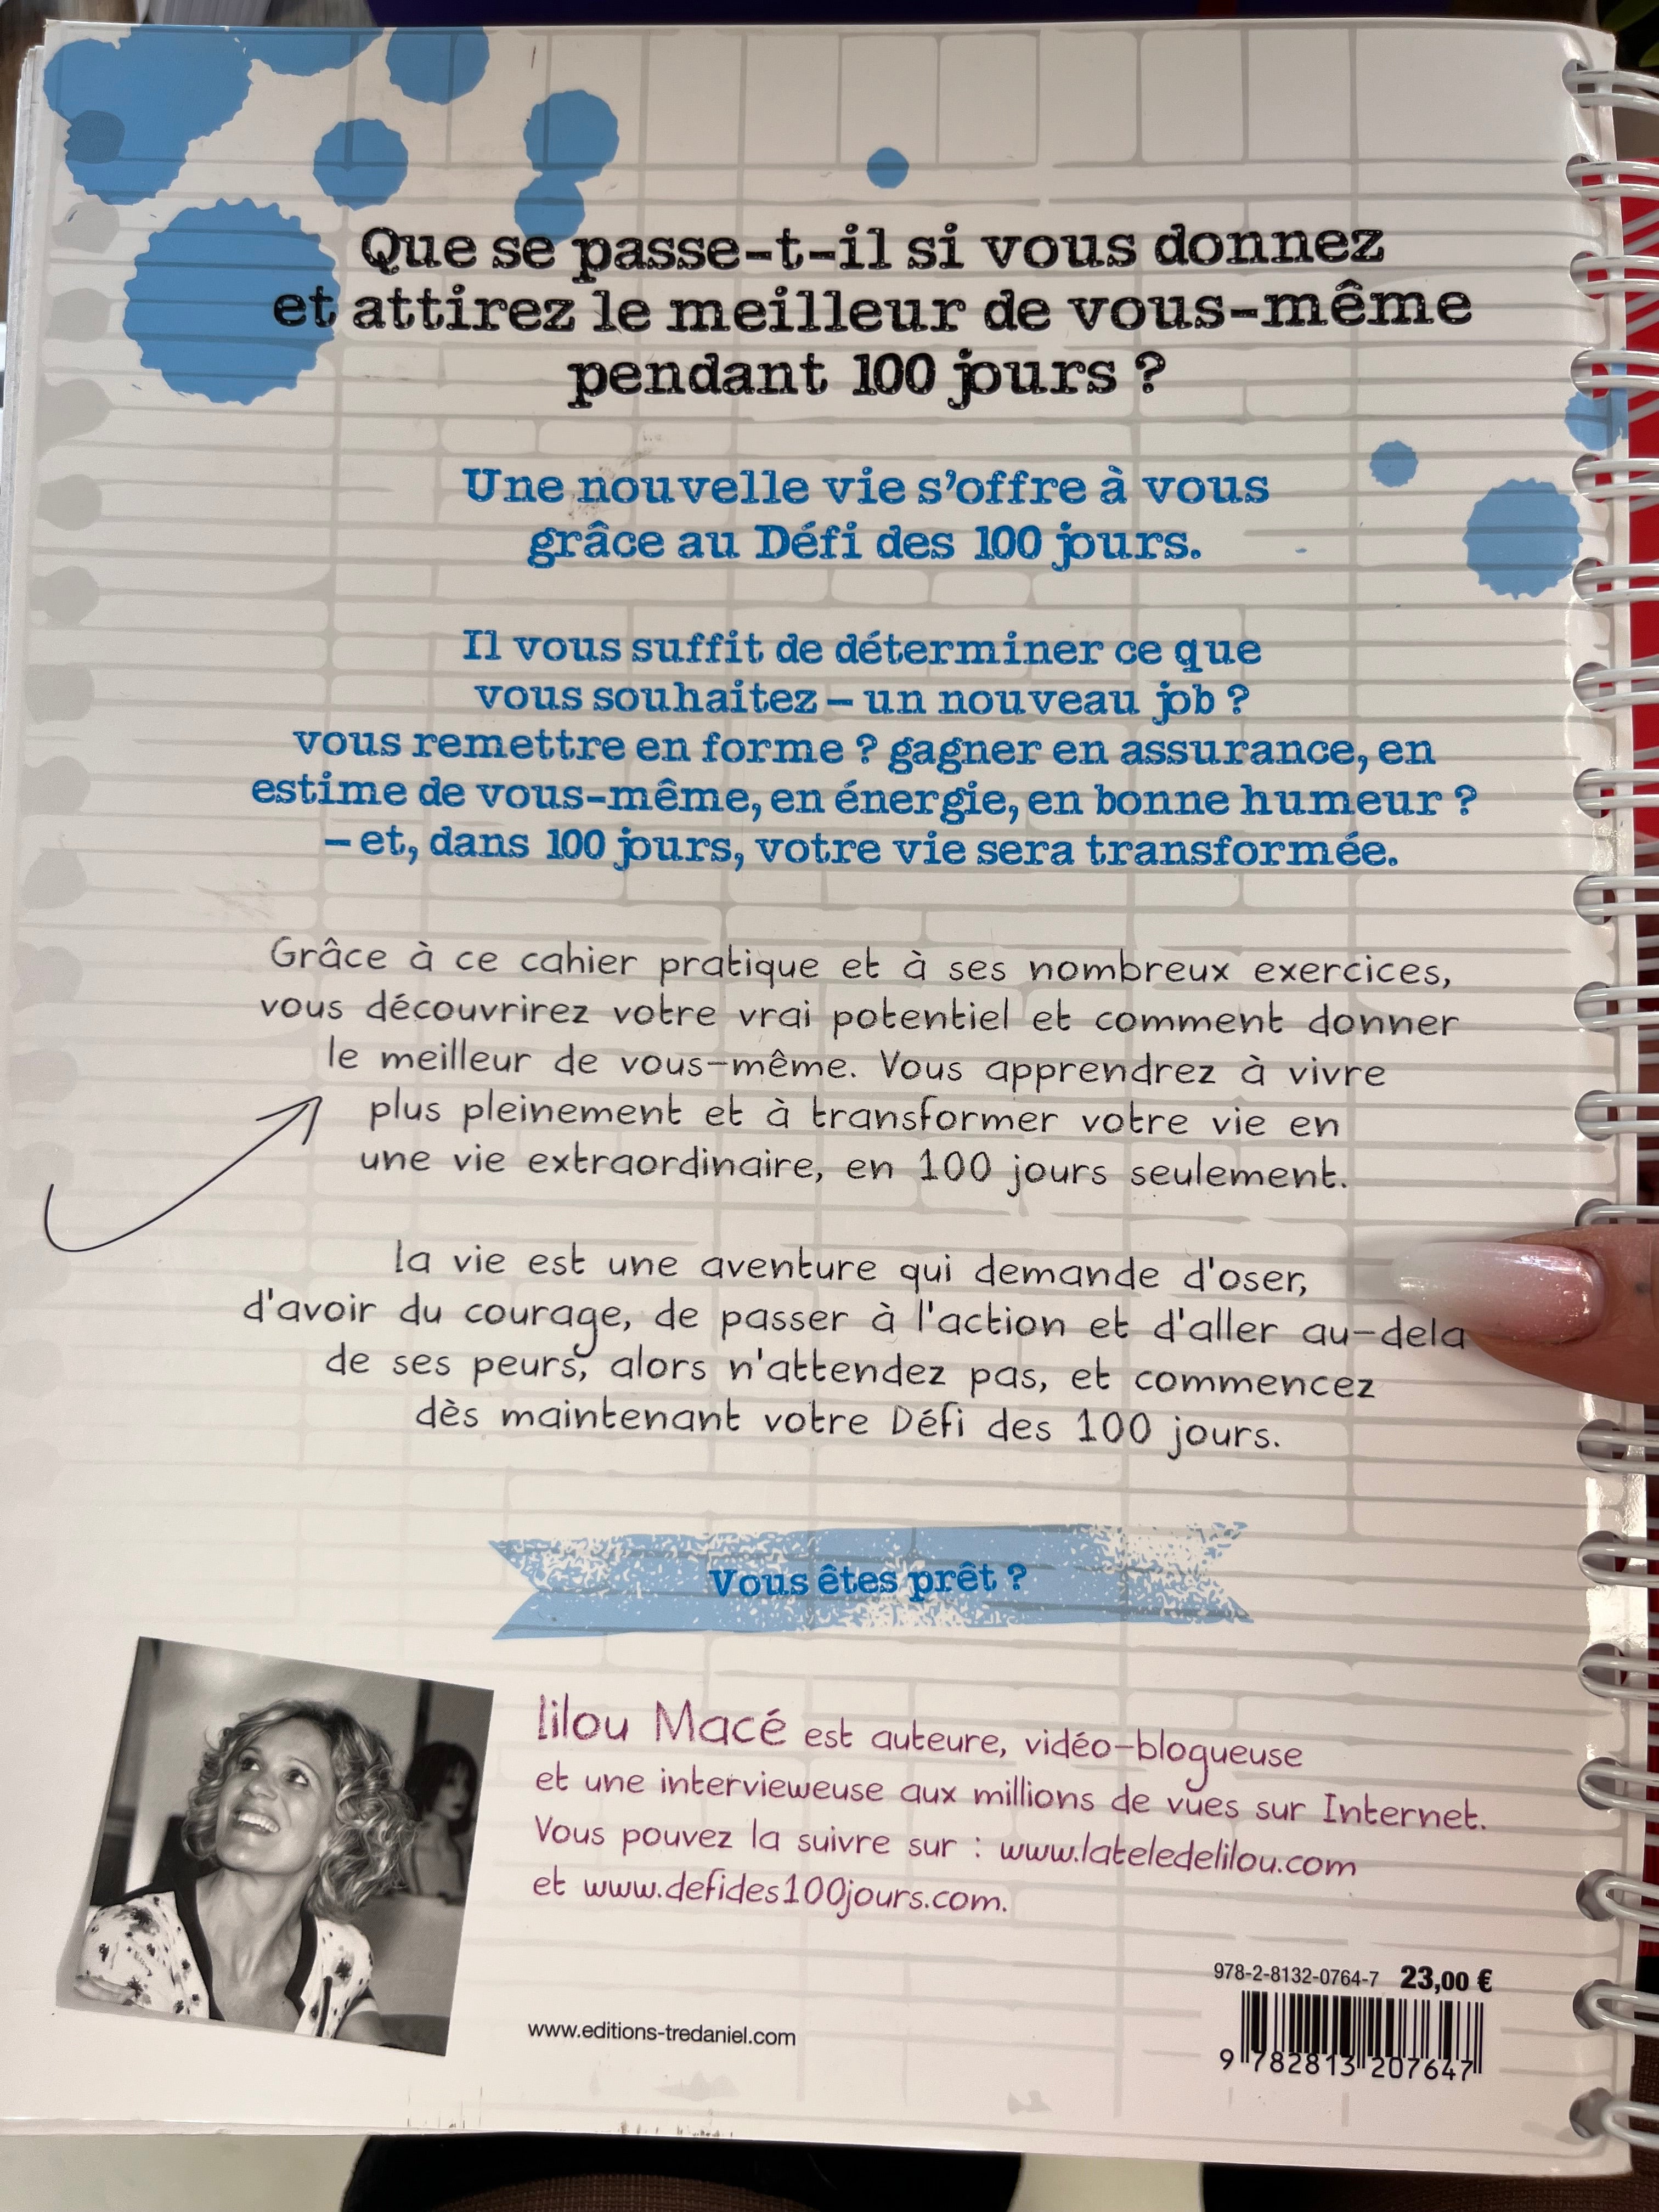 Que se passe-t-il si vous donnez
et attirez le meilleur de vous-même
pendant 100 jours ?
Une nouvelle vie s'offre à vous
grâce au Défi des 100 jours.
Il vous suffit de déterminer ce que
vous souhaitez – un nouveau job ?
vous remettre en forme ? gagner en assurance, en
estime de vous-même, en énergie, en bonne humeur ?
– et, dans 100 jours, votre vie sera transformée.
Grâce à ce cahier pratique et à ses nombreux exercices,
vous découvrirez votre vrai potentiel et comment donner
le meilleur de vous-même. Vous apprendrez à vivre
plus pleinement et à transformer votre vie en
une vie extraordinaire, en 100 jours seulement.
la vie est une aventure qui demande d'oser,
d'avoir du courage, de passer à l'action et d'aller au-dela
de ses peurs, alors n'attendez pas, et commencez
dès maintenant votre Défi des 100 jours.
Vous êtes prêt ?
lilou Macé est auteure, vidéo-blogueuse
et une intervieweuse aux millions de vues sur Internet.
Vous pouvez la suivre sur : www.lateledelilou.com
et www.defides100jours.com.
978-2-8132-0764-7 23,00 €
www.editions-tredaniel.com
9 782813 207647